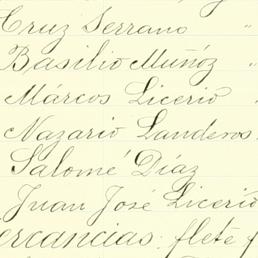 Cruz Serrano "
Basilio Muñóz "
Márcos Licerio "
Nazario Landeros
Salomé Díaz
Juan José Licerio
ercancias: flete